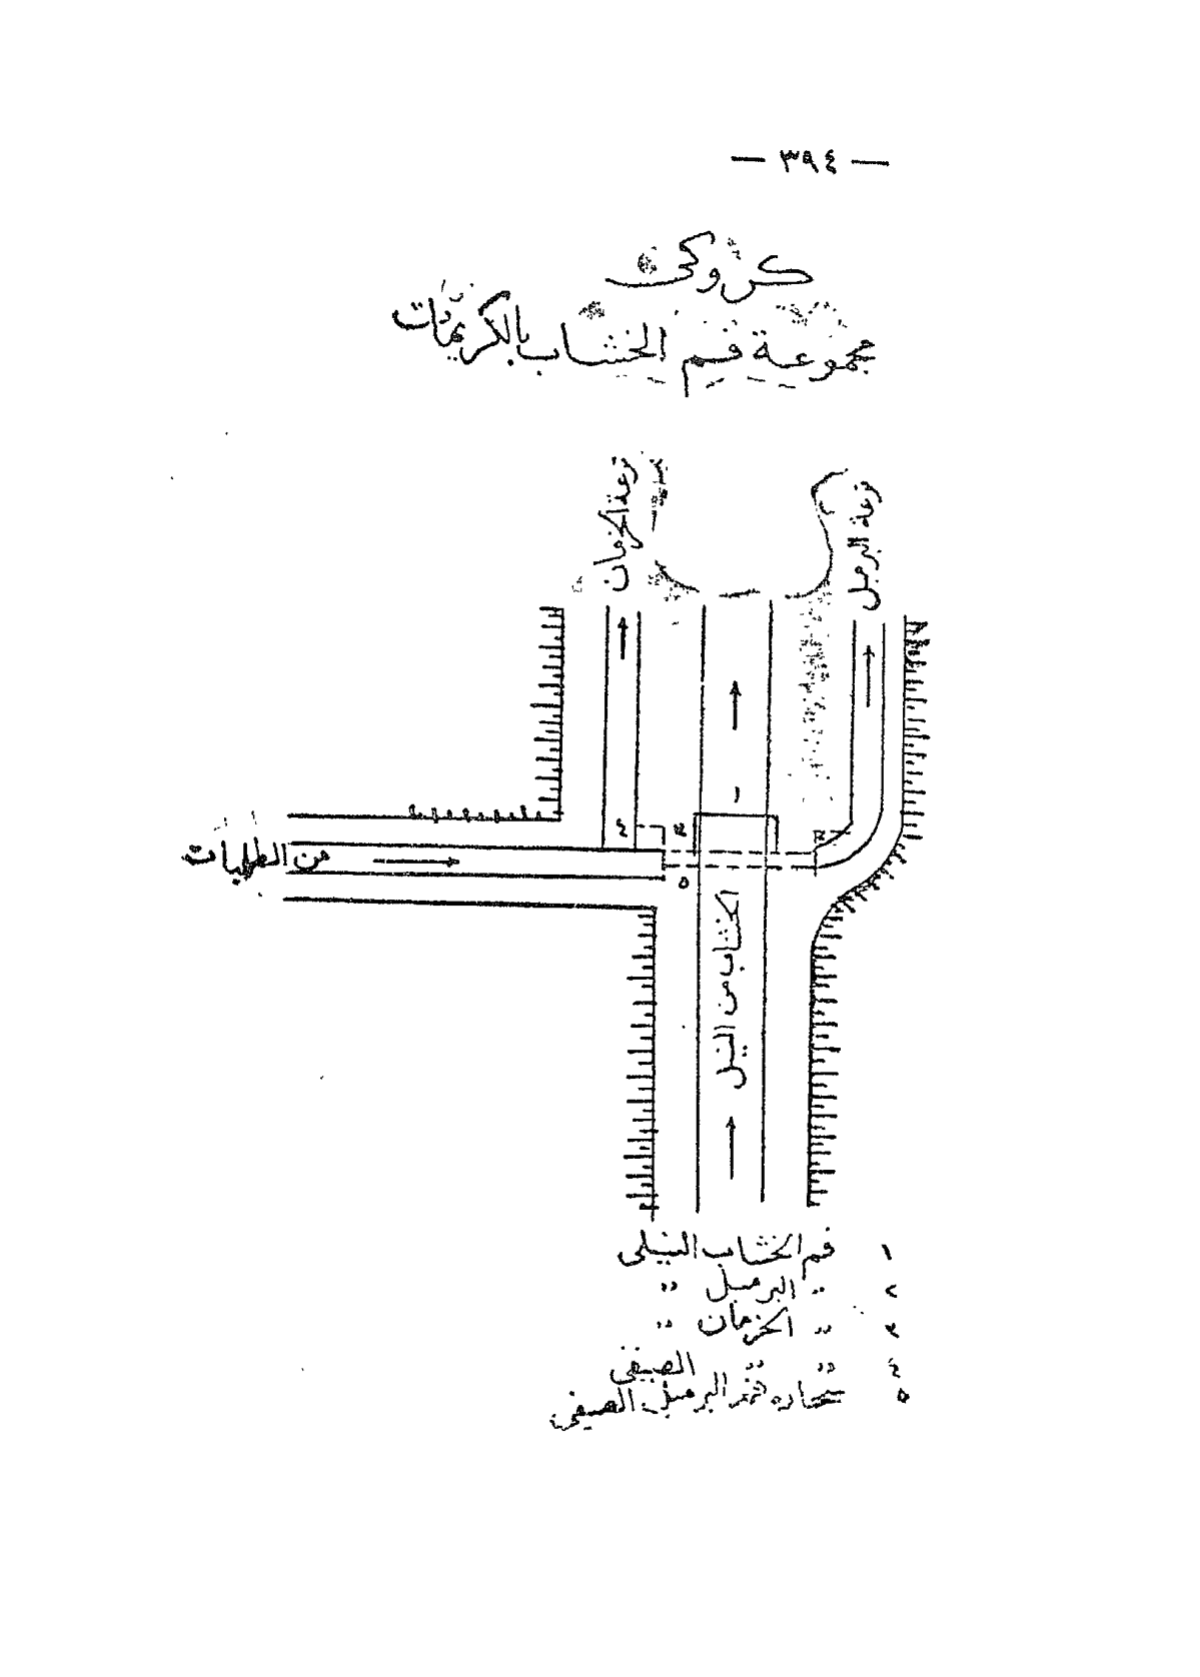 — ٣٩٤ —
كروكى
مجموعة فم الخشاب بالكريمات
ترعة الخزمان
ترعة البرمبل
١
٤
٣
٢
من الطلمبات
٥
الخشاب من النيل
١ فم الخشاب النيلى
٢ 〃 البرمبل 〃
٣ 〃 الخزمان 〃
٤ 〃 〃 الصيفى
٥ سحارة فم البرمبل الصيفى